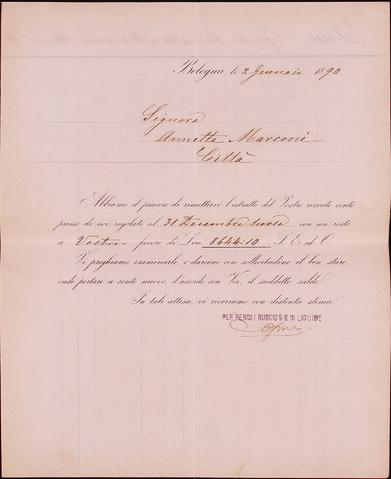 Bologna li 2 Gennaio 1890
Signora
Annetta Marconi
Città
Abbiamo il piacere di rimettervi l'estratto del Vostro riverito conto
presso di noi, regolato al 31 Decembre with con un resto
a Vostro favore di Lire 0644:10 S. E. ed O.
Vi preghiamo esaminarlo, e darcene con sollecitudine il ben stare,
onde portare a conto nuovo, d'accordo con Voi, il suddetto saldo.
In tale attesa, vi riveriamo con distinta stima
PER RENOLI BUGGIO & C. IN LIQUIDE